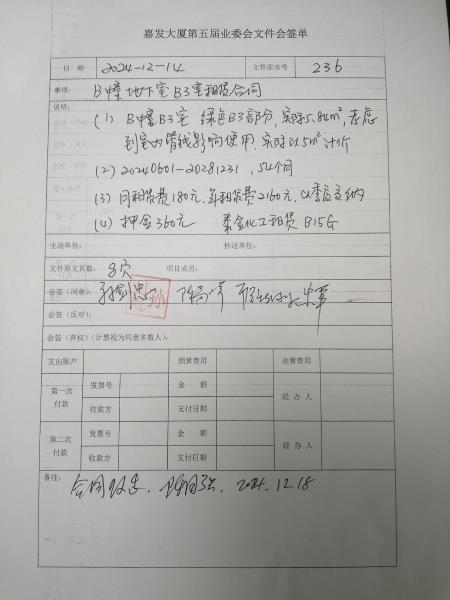 嘉发大厦第五届业委会文件会签单
日 期 2024-12-14 文件流水号 236
事项: B幢地下室B3室租赁合同
说明:
(1) B幢B3室 绿色B3部分,实际5.84㎡,考虑
到室内管线影响使用,实际以5㎡计价
(2) 20240601-20281231, 54个月
(3) 月租赁费180元,年租赁费2160元,以季度交纳
(4) 押金360元 化工租赁B15G
主送单位: 抄送单位:
文件原文页数: 8页 项目成员:
会签(同意):
会签(反对):
会签(弃权)(计票视为同意多数人):
支出账户 预算费用 决算费用
第一次
付款
发票号 金 额
收款方 支付日期
经 办 人
第二次
付款
发票号 金 额
收款方 支付日期
经 办 人
备注:
合同 2024.12.18